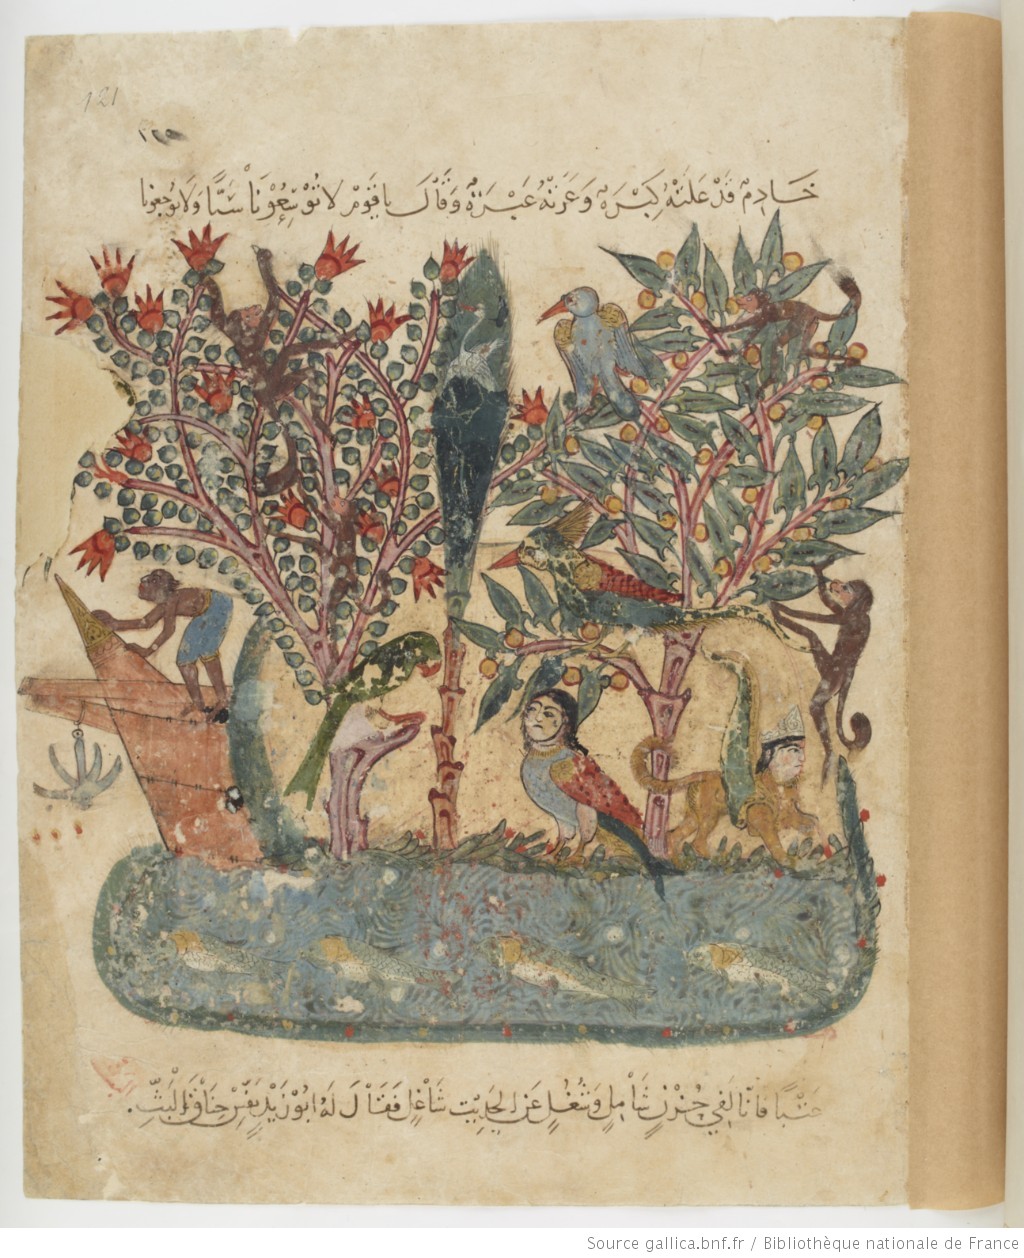 121
خَادِمٌ قَدْ عَلَتْهُ كَبْرَةٌ وَعَرَتْهُ عَبْرَةٌ وَقَالَ يا قَوْم لا تُوْسِعُوْنَا سَبًّا وَلا تُوجِعُونا
عَتْبًا فَانّا لَفِي حُزْنٍ شَامِلٍ وَشُغْلٍ عَنِ الحَدِيْثِ شَاغِلٍ فَقَالَ لَهُ ابُوْ زَيْدٍ نَفِّسْ خِنَاقَ البَثِّ
Source gallica.bnf.fr / Bibliothèque nationale de France